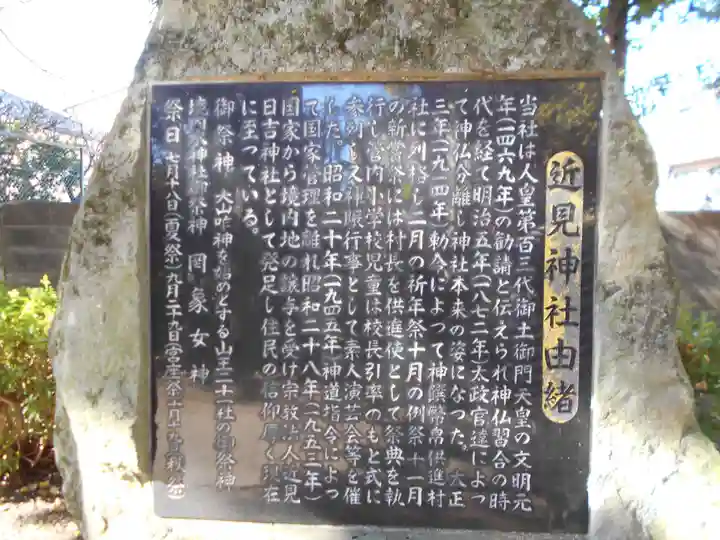 近見神社由緒
当社は人皇第百三代御土御門天皇の文明元
年(一四六九年)の勧請と伝えられ神仏習合の時
代を経て明治五年(一八七二年)太政官達によっ
て神仏分離し神社本来の姿になった。大正
三年(一九一四年)勅令によって神饌幣帛供進村
社に列格し二月の祈年祭十月の例祭十一月
の新嘗祭には村長を供進使として祭典を執
行し管内小学校児童は校長引率のもと式に
した。昭和二十年(一九四五年)神道指令によっ
て国家管理を離れ昭和二十八年(一九五三年)
国家から境内地の譲与を受け宗教法人近見
日吉神社として発足し住民の信仰厚く現在
に至っている。
御祭神 大山咋神を始めとする山王二十一社の御祭神
境内 神社御祭神 岡象女神
祭日 七月十八日(夏祭)九月二十九日(宮座祭)